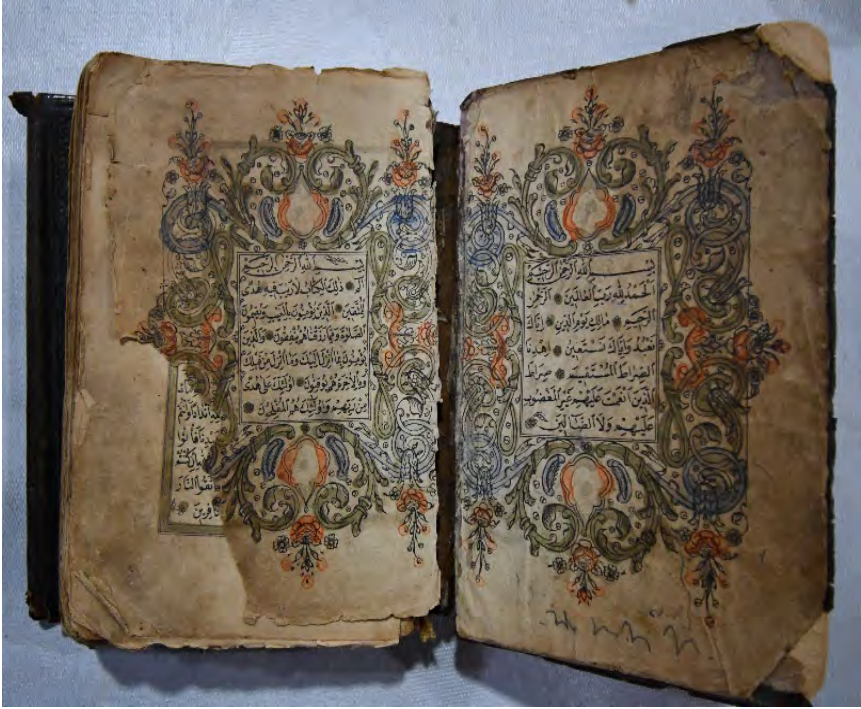 بسم الله الرحمن الرحيم
الحمد لله رب العالمين ۝ الرحمن
الرحيم ۝ مالك يوم الدين ۝ اياك
نعبد واياك نستعين ۝ اهدنا
الصراط المستقيم ۝ صراط
الذين انعمت عليهم غير المغضوب
عليهم ولا الضالين ۝
بسم الله الرحمن الرحيم
الم ۝ ذلك الكتاب لا ريب فيه هدى
للمتقين ۝ الذين يؤمنون بالغيب ويقيمون
الصلوة ومما رزقناهم ينفقون ۝ والذين
يؤمنون بما انزل اليك وما انزل من قبلك
وبالاخرة هم يوقنون ۝ اولئك على هدى
من ربهم واولئك هم المفلحون ۝
النار